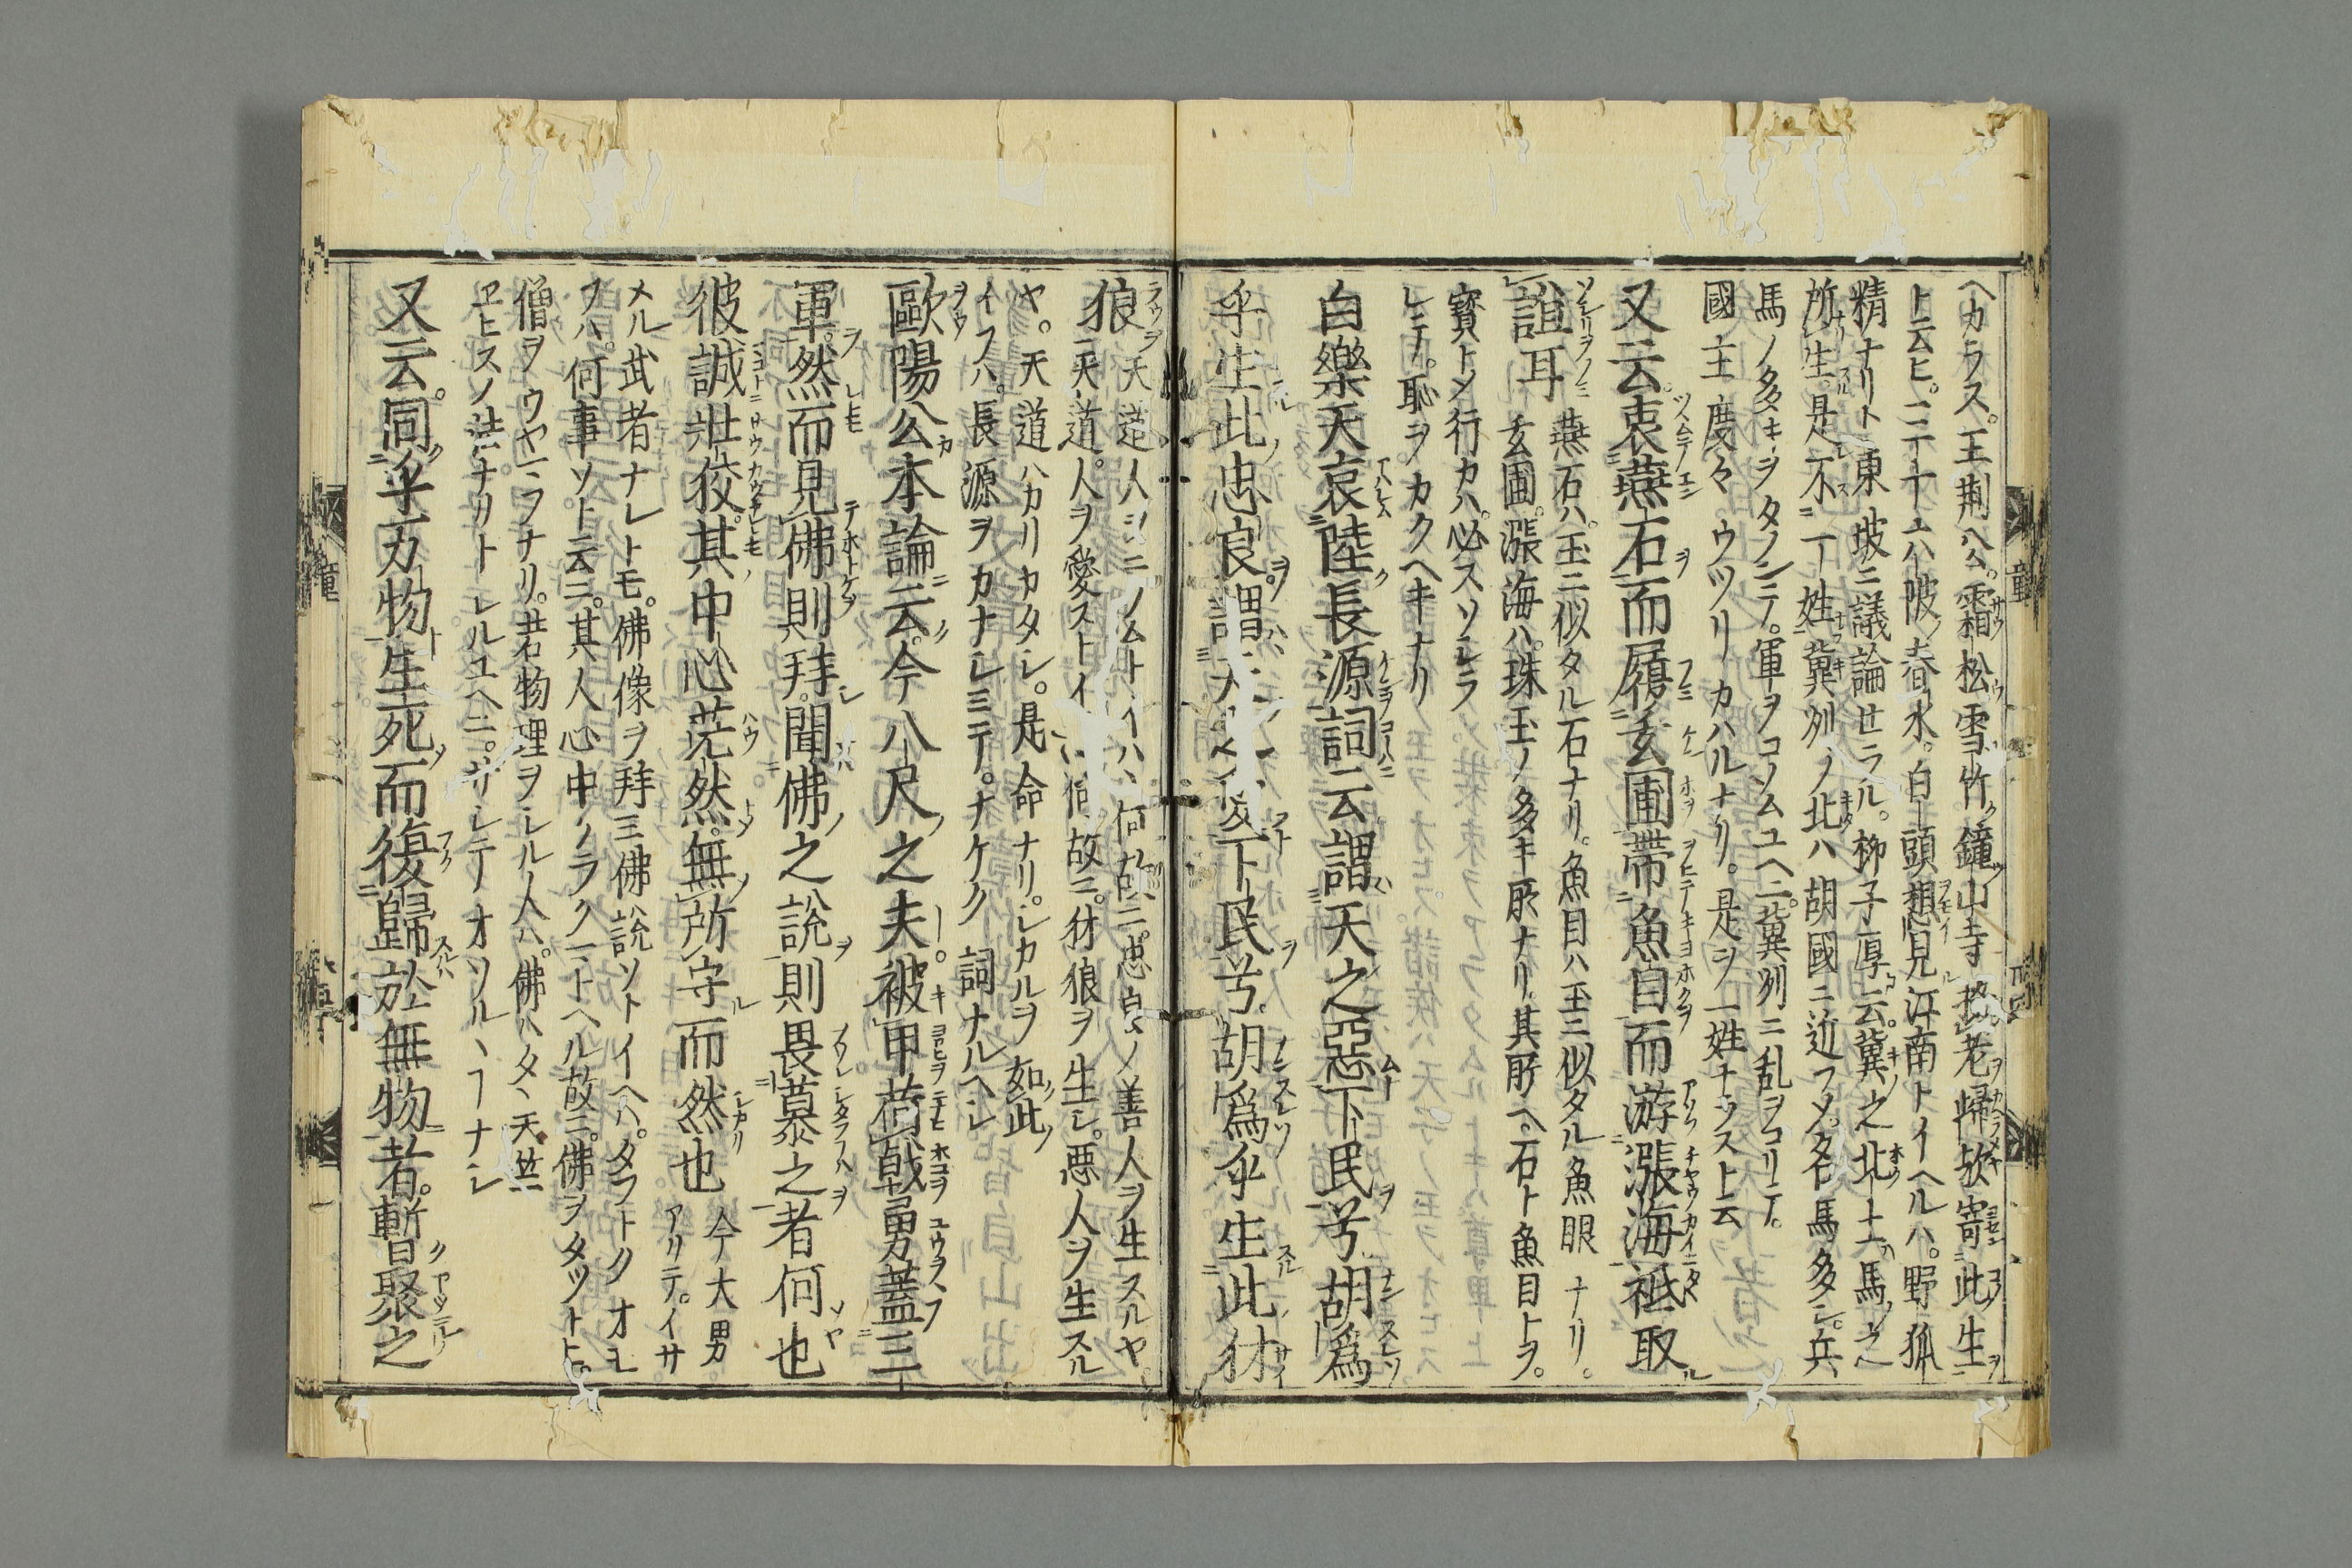 ヘカラス。王荆公。霜松雪竹鐘山寺投老歸歟寄此生
ト云ヒ。三十六陂春水。白頭想見江南トイヘルハ。野狐
精ナリト東坡ニ議論せラル。柳子厚云。冀之北土馬之
所生。是不一姓。冀列ノ北ハ胡國ニ近フメ。名馬多シ。兵
馬ノ多キヲタノンテ。軍ヲコノムユヘニ。冀列ニ乱ヲコリテ。
國主度々ウツリカハルナリ。是ヲ一姓ナラスト云
又云。衷燕石而履玄圃帶魚目而游漲海祗取
誼耳
燕石ハ。玉ニ似タル石ナリ。魚目ハ玉ニ似タル魚眼ナリ。
玄圃。漲海ハ。珠玉ノ多キ所ナリ。其所ヘ。石ト魚目トヲ。
寳トメ行カハ。必スソシラ
レテ。恥ヲカクヘキナリ
白樂天哀陸長源詞云謂天之惡下民兮。胡爲
乎生此忠良。謂天之愛下民兮。胡爲乎生此犲
狼
天造人ヲコノムトイハヽ何故ニ。忠良ノ善人ヲ生スルヤ。
天道。人ヲ愛ストイハヽ何故ニ。犲狼ヲ生シ。悪人ヲ生スル
ヤ。天道ハカリカタシ。是命ナリ。シカルヲ如此
イフハ。長源ヲカナシミテ。ナケク詞ナルヘシ
歐陽公本論云。今八尺之夫。被甲荷戟勇蓋三
軍。然而見佛則拜。聞佛之説則畏慕之者何也
彼誠壯佼。其中心茫然。無所守而然也
今大男アリテ。イサ
メル武者ナレトモ。佛像ヲ拜三佛説ソトイヘハ。タフトクオモ
フハ。何事ソト云ニ。其人心中クラクヘル故ニ。佛ヲタツトヒ
僧ヲウヤマフナリ。若物理ヲシル人ハ。佛ハタヽ天竺
ヱヒスノ法ナリトシルユヘニ。サシテオソルヽヿナシ
又云。同乎万物生死而復歸於無物者。暫聚之